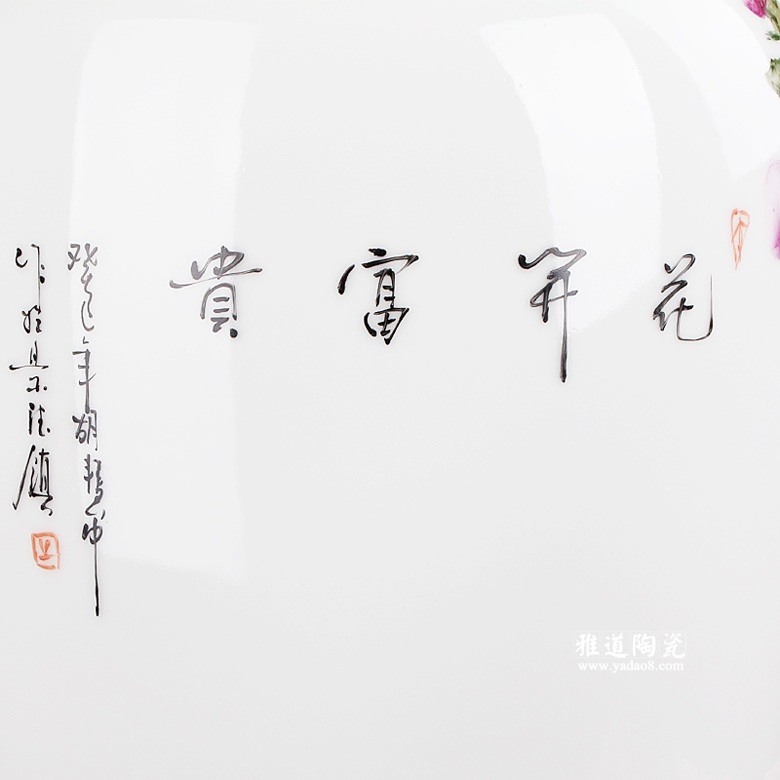 花開富貴
癸巳年胡慧中
作於景德鎮
雅道陶瓷
www.yadao8.com